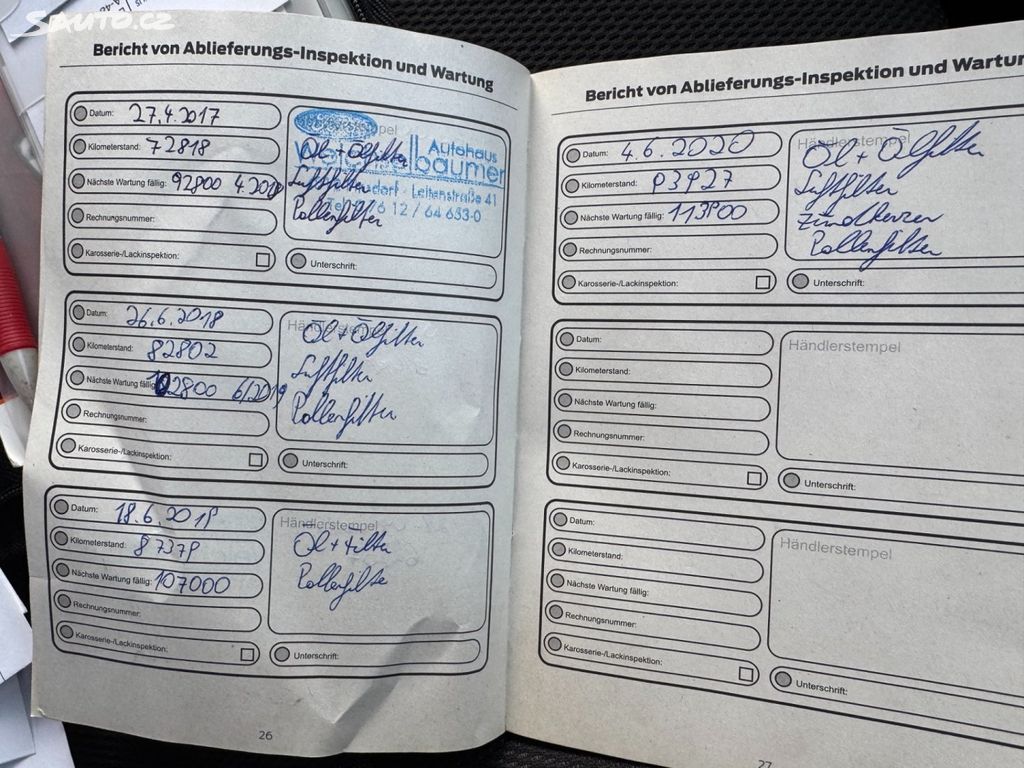 SAUTO.CZ
Bericht von Ablieferungs-Inspektion und Wartung
Datum: 27.4.2017
Kilometerstand: 72818
Nächste Wartung fällig: 92800 4.2018
Rechnungsnummer:
Karosserie-/Lackinspektion:
Autohaus
baumer
Leitenstraße 41
12 / 64 653-0
Öl + Ölfilter
Luftfilter
Pollenfilter
Unterschrift:
Datum: 26.6.2018
Kilometerstand: 82802
Nächste Wartung fällig: 102800 6/2019
Rechnungsnummer:
Karosserie-/Lackinspektion:
Händlerstempel
Öl + Ölfilter
Luftfilter
Pollenfilter
Unterschrift:
Datum: 18.6.2019
Kilometerstand: 87379
Nächste Wartung fällig: 107000
Rechnungsnummer:
Karosserie-/Lackinspektion:
Händlerstempel
Öl + Filter
Pollenfilter
Unterschrift:
26
Bericht von Ablieferungs-Inspektion und Wartun
Datum: 4.6.2020
Kilometerstand: 93927
Nächste Wartung fällig: 113900
Rechnungsnummer:
Karosserie-/Lackinspektion:
Händlerstempel
Öl + Ölfilter
Luftfilter
Zündkerzen
Pollenfilter
Unterschrift:
Datum:
Kilometerstand:
Nächste Wartung fällig:
Rechnungsnummer:
Karosserie-/Lackinspektion:
Händlerstempel
Unterschrift:
Datum:
Kilometerstand:
Nächste Wartung fällig:
Rechnungsnummer:
Karosserie-/Lackinspektion:
Händlerstempel
Unterschrift:
27